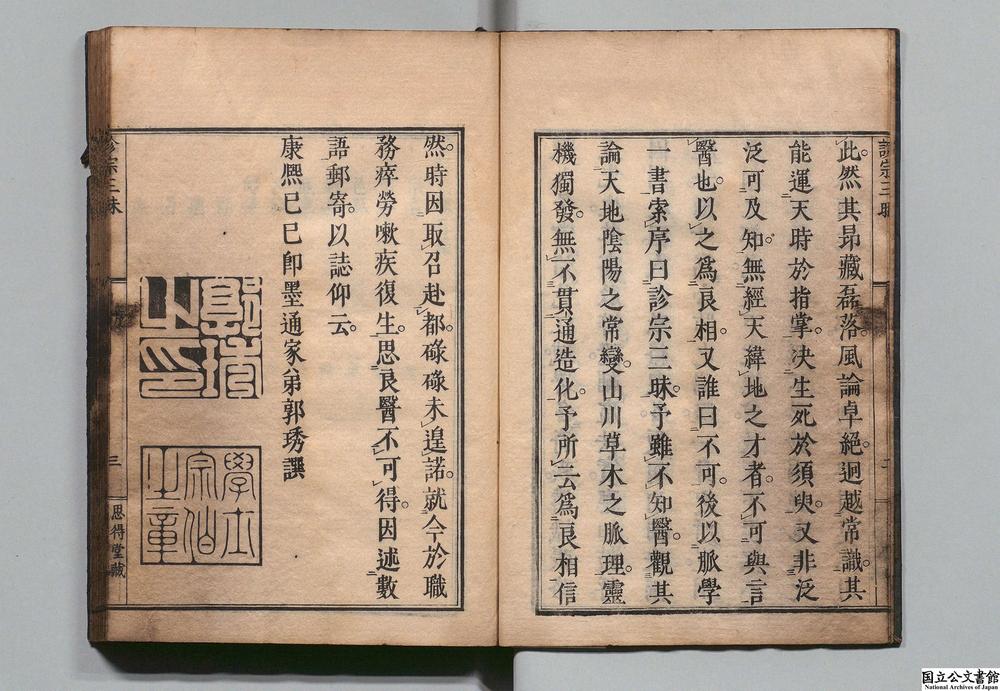 診宗三昧
此然其昻藏磊落風論卓絕迥越常識其
能運天時於指掌决生死於須臾又非泛
泛可及知無經天緯地之才者不可與言
醫也以之爲良相又誰曰不可後以脈學
一書索序曰診宗三昧予雖不知醫觀其
論天地陰陽之常變山川草木之脈理靈
機獨發無不貫通造化予所云爲良相信
然時因取召赴都碌碌未遑諾就今於職
務瘁勞嗽疾復生思良醫不可得因述數
語郵寄以誌仰云
康熈己巳卽墨通家弟郭琇譔
郭琇之印
診宗三昧
三
思得堂藏
国立公文書館
National Archives of Japan